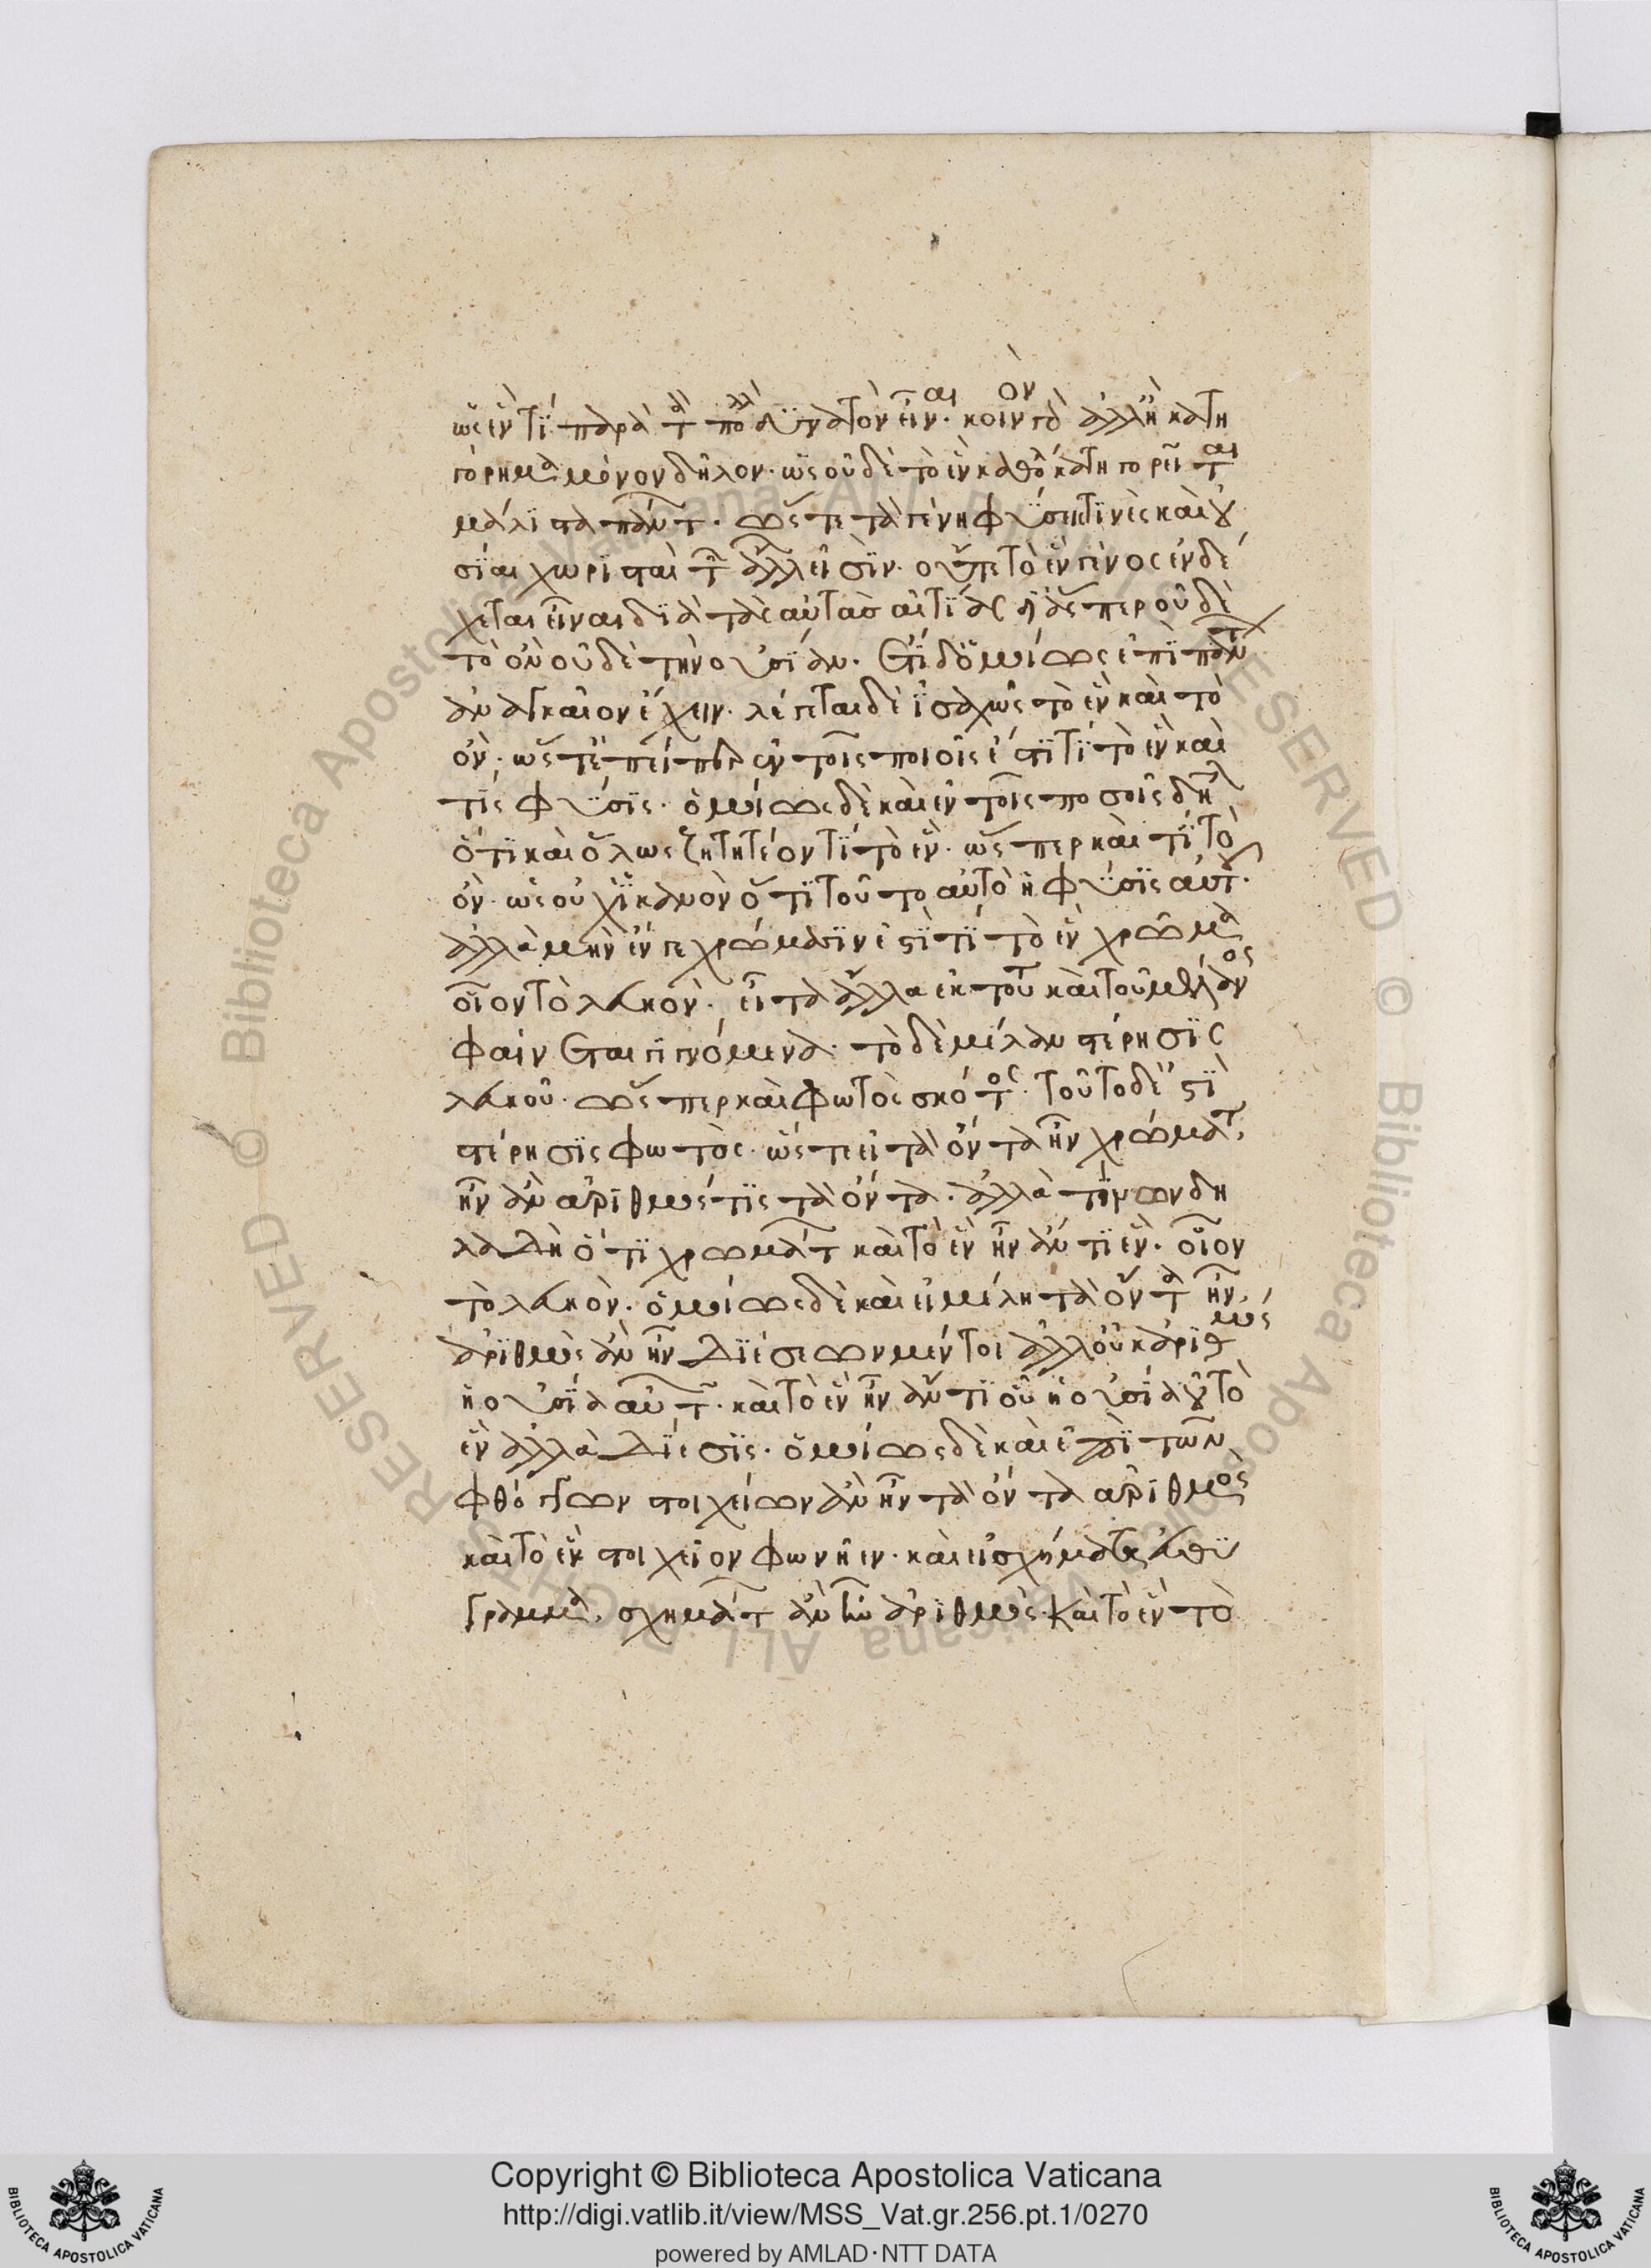 ὡς ἕν τι παρὰ τὰ πολλὰ δυνατὸν εἶναι· κοινὸν γὰρ ἀλλ' ἢ κατη
γόρημα μόνον δῆλον· ὡς οὐδὲ τὸ ἓν καθόλου κατηγορεῖται
μάλιστα πάντων. ὥστε τὰ γένη φύσεις τινὲς καὶ οὐ
σίαι χωρισταὶ τῶν ἄλλων εἰσίν· οὔτε τὸ ἓν γένος ἐνδέ
χεται εἶναι διὰ τὰς αὐτὰς αἰτίας δι' ἅσπερ οὐδὲ
τὸ ὂν οὐδὲ τὴν οὐσίαν. ἔτι δ' ὁμοίως ἐπὶ πάντων
ἀναγκαῖον ἔχειν· λέγεται δὲ ἰσαχῶς τὸ ἓν καὶ τὸ
ὄν· ὥστ' ἐπείπερ ἐν τοῖς ποιοῖς ἐστί τι τὸ ἓν καὶ
τις φύσις· ὁμοίως δὲ καὶ ἐν τοῖς ποσοῖς δῆλον
ὅτι καὶ ὅλως ζητητέον τί τὸ ἕν· ὥσπερ καὶ τί τὸ
ὄν· ὡς οὐχ ἱκανὸν ὅτι τοῦτο αὐτὸ ἡ φύσις αὐτοῦ.
ἀλλὰ μὴν ἔν γε χρώμασίν ἐστί τι τὸ ἓν χρῶμα
οἷον τὸ λευκόν· εἶτα τὰ ἄλλα ἐκ τούτου καὶ τοῦ μέλανος
φαίνεται γιγνόμενα· τὸ δὲ μέλαν στέρησις
λευκοῦ· ὥσπερ καὶ φωτὸς σκότος· τοῦτο δ' ἐστὶ
στέρησις φωτός· ὥστε εἰ τὰ ὄντα ἦν χρώματα,
ἦν ἂν ἀριθμός τις τὰ ὄντα· ἀλλὰ τίνων δη
λαδὴ ὅτι χρωμάτων καὶ τὸ ἓν ἦν ἄν τι ἕν· οἷον
τὸ λευκόν· ὁμοίως δὲ καὶ εἰ μέλη τὰ ὄντα ἦν,
ἀριθμὸς ἂν ἦν διέσεων μέντοι ἀλλ' οὐκ ἀριθμὸς
ἡ οὐσία αὐτῶν· καὶ τὸ ἓν ἦν ἄν τι οὗ ἡ οὐσία οὐ τὸ
ἓν ἀλλὰ δίεσις· ὁμοίως δὲ καὶ ἐπὶ τῶν
φθόγγων στοιχείων ἂν ἦν τὰ ὄντα ἀριθμὸς
καὶ τὸ ἓν στοιχεῖον φωνῆεν· καὶ εἰ σχήματα εὐθύ
γραμμα, σχημάτων ἂν ἦν ἀριθμὸς· καὶ τὸ ἓν τὸ
Copyright © Biblioteca Apostolica Vaticana
http://digi.vatlib.it/view/MSS_Vat.gr.256.pt.1/0270
powered by AMLAD·NTT DATA
BIBLIOTECA APOSTOLICA VATICANA
BIBLIOTECA APOSTOLICA VATICANA